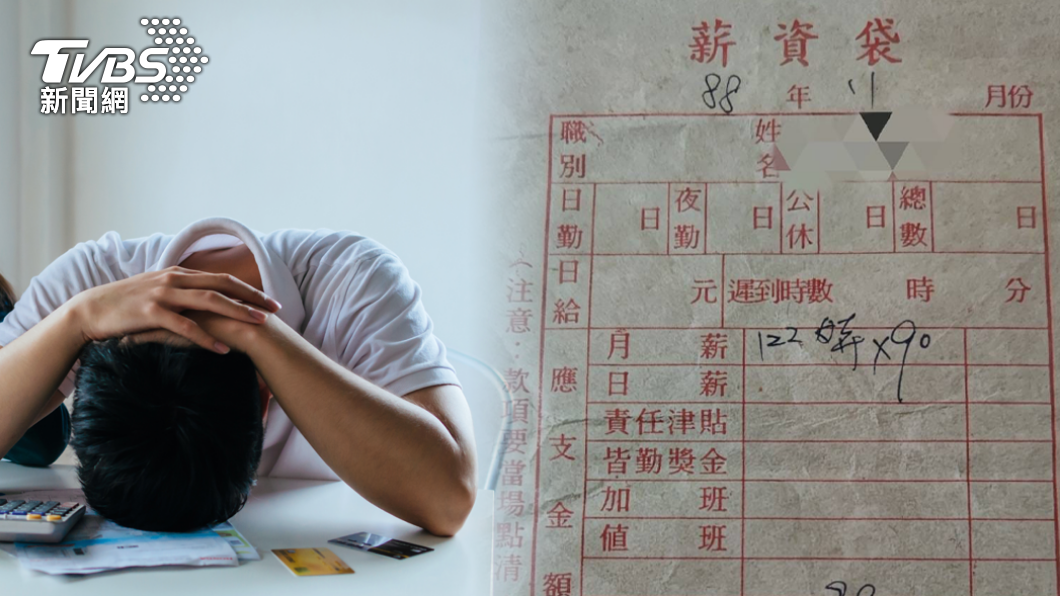 TVBS
新聞網
薪資袋
88年11月份
職別 姓名
日勤 日 夜勤 日 公休 日 總數 日
日給 元 遲到時數 時 分
應支金額
月薪 122時×90
日薪
責任津貼
皆勤獎金
加班
值班
(注意:款項要當場點清